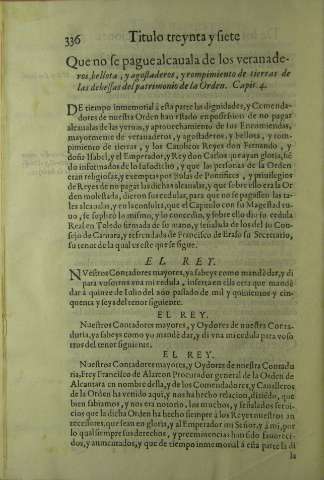 336 Titulo treynta y siete
Que no se pague alcauala de los veranade-
ros, bellota, y agostaderos, y rompimiento de tierras de
las dehessas del patrimonio de la Orden. Capit. 4.
DE tiempo inmemorial à esta parte las dignidades, y Comenda-
dores de nuestra Orden han estado en possession de no pagar
alcaualas de las yeruas, y aprouechamiento de los Encomiendas,
mayormente de veranaderos, y agostaderos, y bellota, y rom-
pimiento de tierras, y los Catolicos Reyes don Fernando, y
doña Isabel, y el Emperador, y Rey don Carlos que ayan gloria, siẽ
do informados de lo susodicho, y que las personas de la Orden
eran religiosas, y exemptas por Bulas de Pontifices, y priuilegios
de Reyes de no pagar las dichas alcaualas, y que sobre ello era la Or
den molestada, dieron sus cedulas, para que no se pagassen las ta-
les alcaualas, y en la consulta, que el Capitulo con su Magestad tu-
uo, se suplicò lo mismo, y lo concedio, y sobre ello dio su cedula
Real en Toledo firmada de su mano, y señalada de los del su Con-
sejo de Camara, y refrendada de Francisco de Eraso su Secretario,
su tenor de la qual es este que se sigue.
EL REY.
NVestros Contadores mayores, ya sabeys como mandè dar, y di
para vosotros vna mi cedula, inserta en ella otra que mandè
dar à quinze de Iulio del año passado de mil y quinientos y cin-
quenta y seys del tenor siguiente.
EL REY.
Nuestros Contadores mayores, y Oydores de nuestra Conta-
duria, ya sabeys como yo mandè dar, y di vna mi cedula para voso
tros del tenor siguiente.
EL REY.
Nuestros Contadores mayores, y Oydores de nuestra Contadu
ria, Frey Francisco de Alarcon Procurador general de la Orden de
Alcantara en nombre della, y de los Comendadores, y Caualleros
de la Orden ha venido aqui, y nos ha hecho relacion, diziẽdo, que
bien sabiamos, y nos era notorio, los muchos, y señalados serui-
cios que la dicha Orden ha hecho siempre à los Reyes nuestros an
tecessores, que sean en gloria, y al Emperador mi Señor, y à mi, por
lo qual siempre sus derechos, y preeminencias han sido fauoreci-
dos, y aumentados, y que de tiempo inmemorial à esta parte la di
la